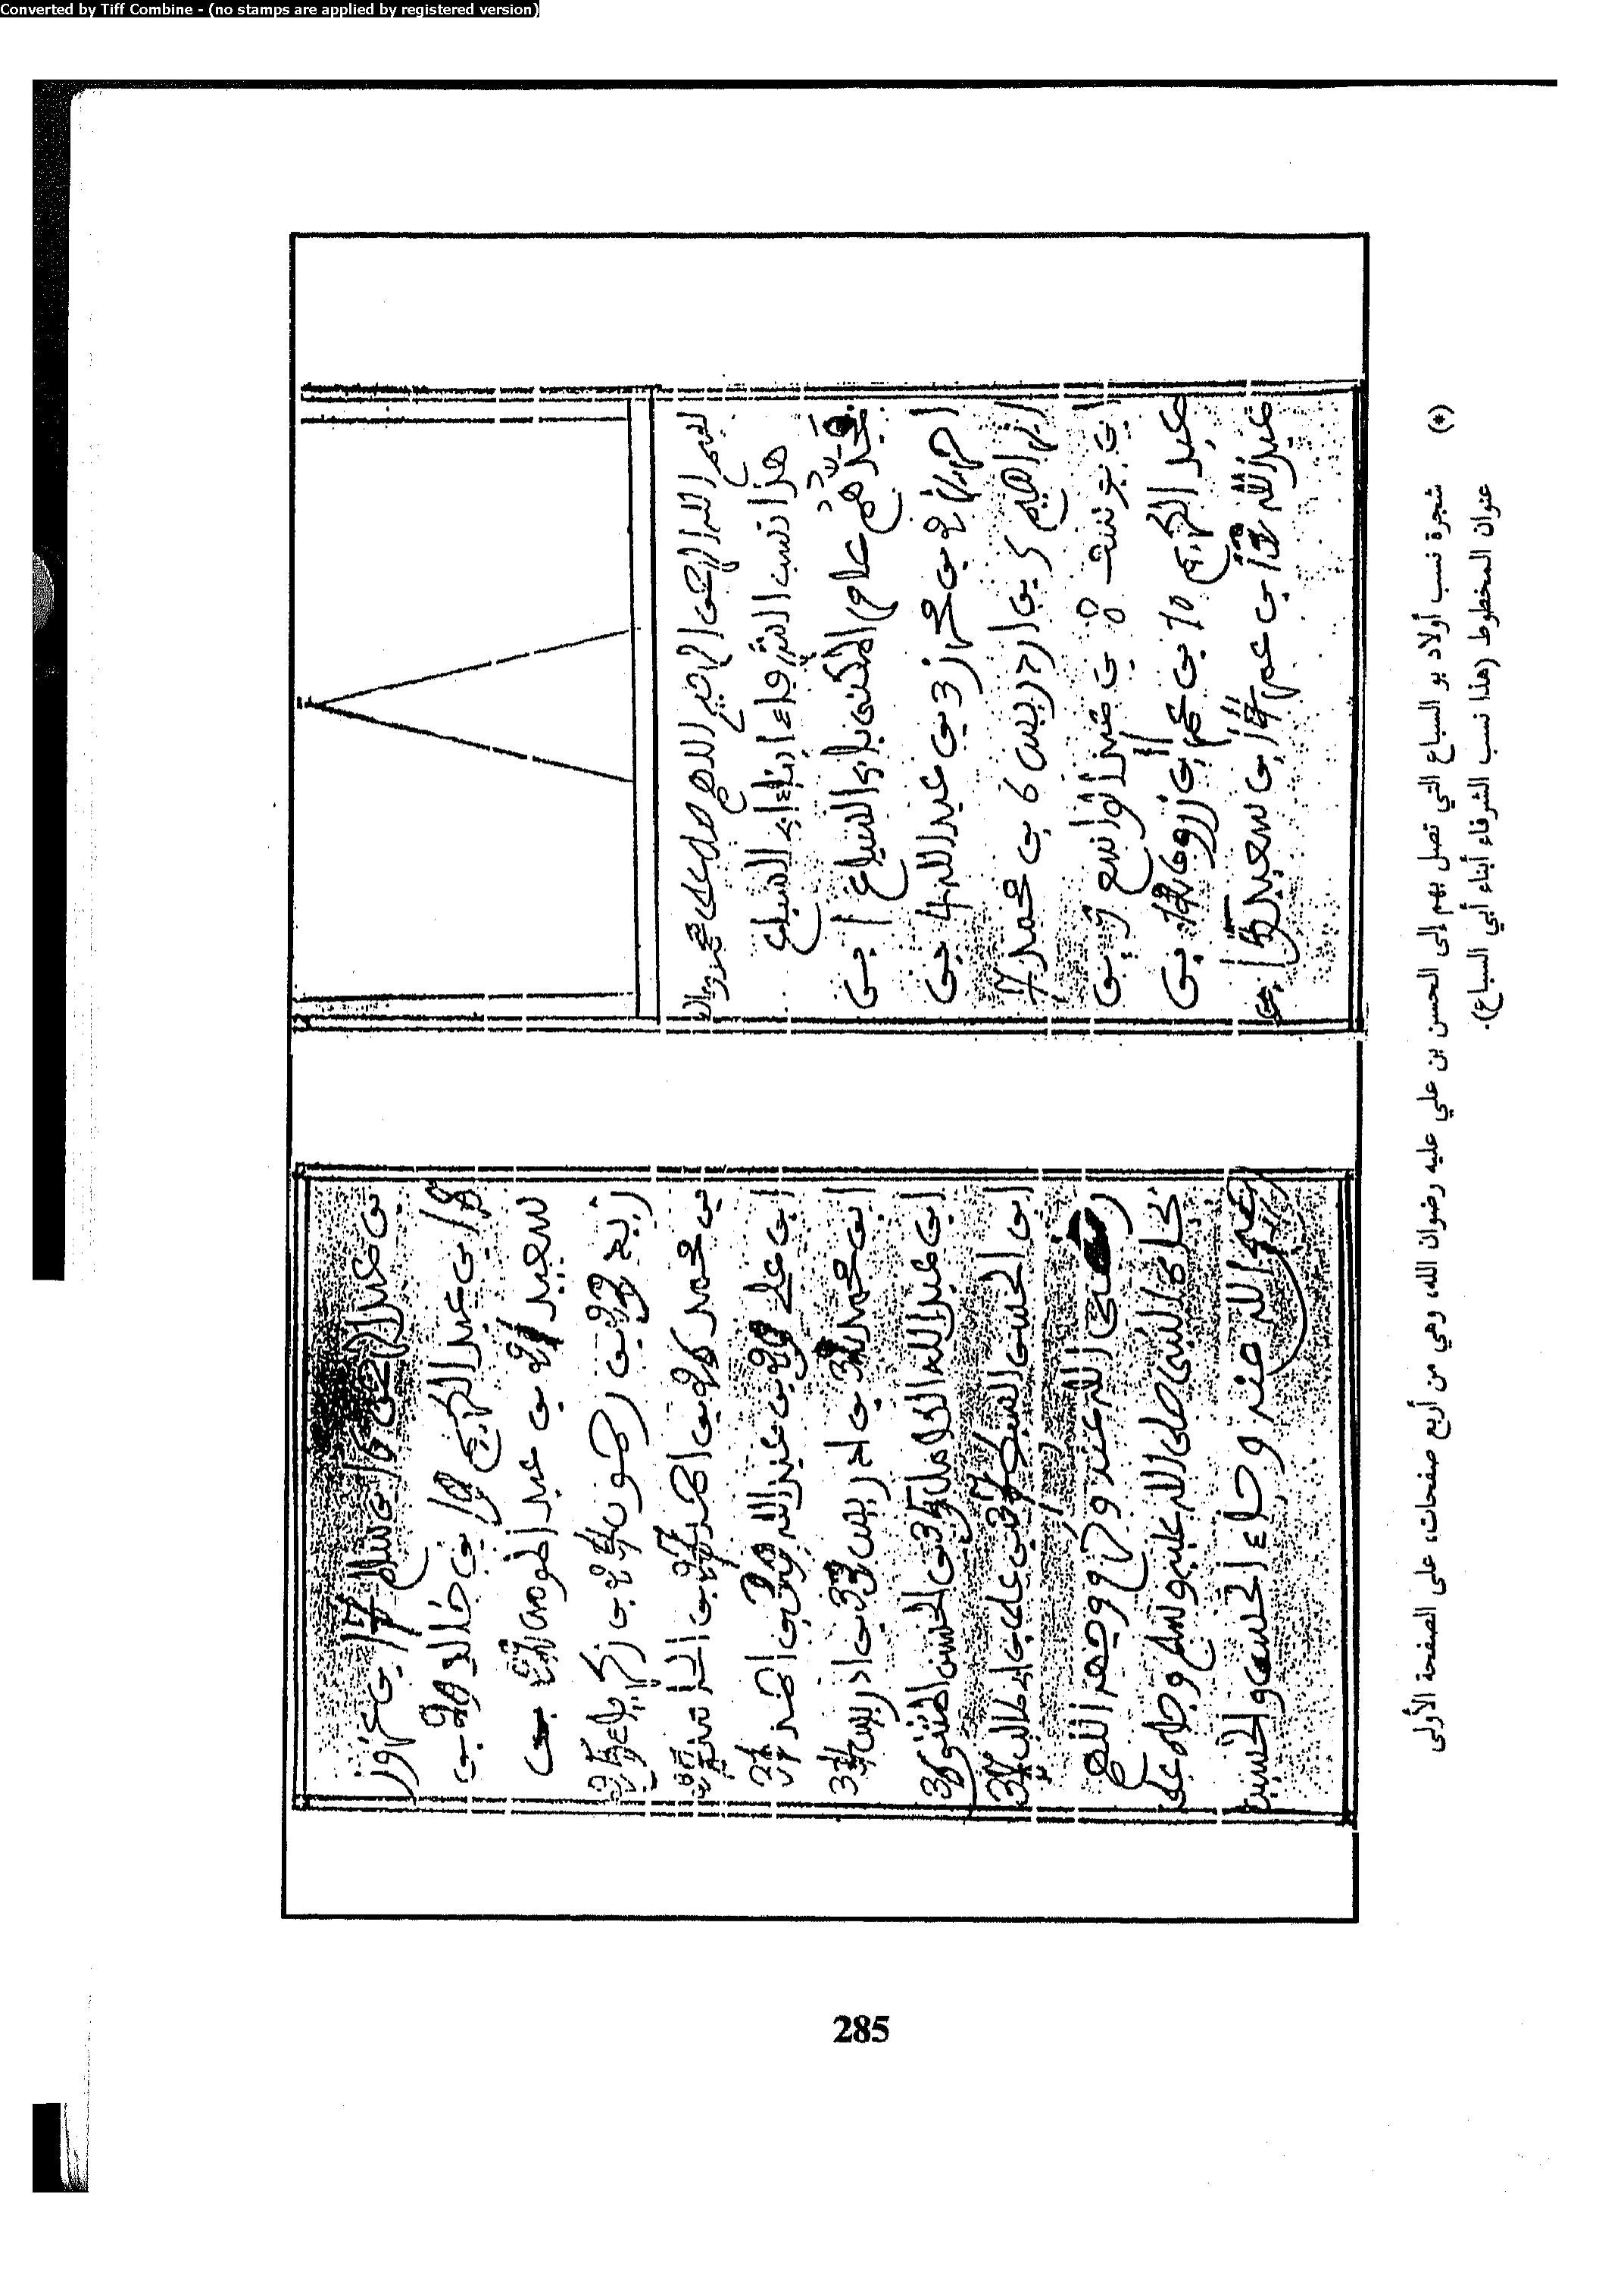 Converted by Tiff Combine - (no stamps are applied by registered version)
بسم الله الرحمن الرحيم اللهم صل على محمد وءال
هذا نسب الشرفاء ابناء ابى السباع
جدهم عامر المكنى بابى السباع 1 بن
احريز 2 بن محمد 3 بن عبد الله 4 بن
ابراهيم 5 بن ادريس 6 بن محمد 7
بن يوسف 8 بن عبد الواسع 9 بن
عبد الكريم 10 بن عمر بن زروق 12 بن
عبد الله 13 بن عمر 14 بن سعيد 15 بن
بن عبد الرحمن 16 بن سالم 17 بن عزوز
18 بن عبد الكريم 19 بن خالد 20 بن
سعيد 21 بن عبد المومن 22 بن
زيد 23 بن رحمون 24 بن زكرياء 25
بن محمد 26 بن احمد 27 بن
ابن على 29 بن عبد الله 30 بن احمد 31
ابن محمد 32 بن ادريس 33 بن ادريس 34
ابن عبد الله الكامل 35 بن الحسن المثنى 36
ابن الحسن السبط 37 بن على بن ابى طالب
رضى الله عنه اللهم
النبى صلى الله عليه وسلم وجاه على
رضى الله عنه وجاه الحسن والحسين
(*) شجرة نسب أولاد بو السباع التي تصل بهم إلى الحسن بن علي عليه رضوان الله، وهي من أربع صفحات، على الصفحة الأولى
عنوان المخطوط (هذا نسب الشرفاء أبناء أبي السباع).
285